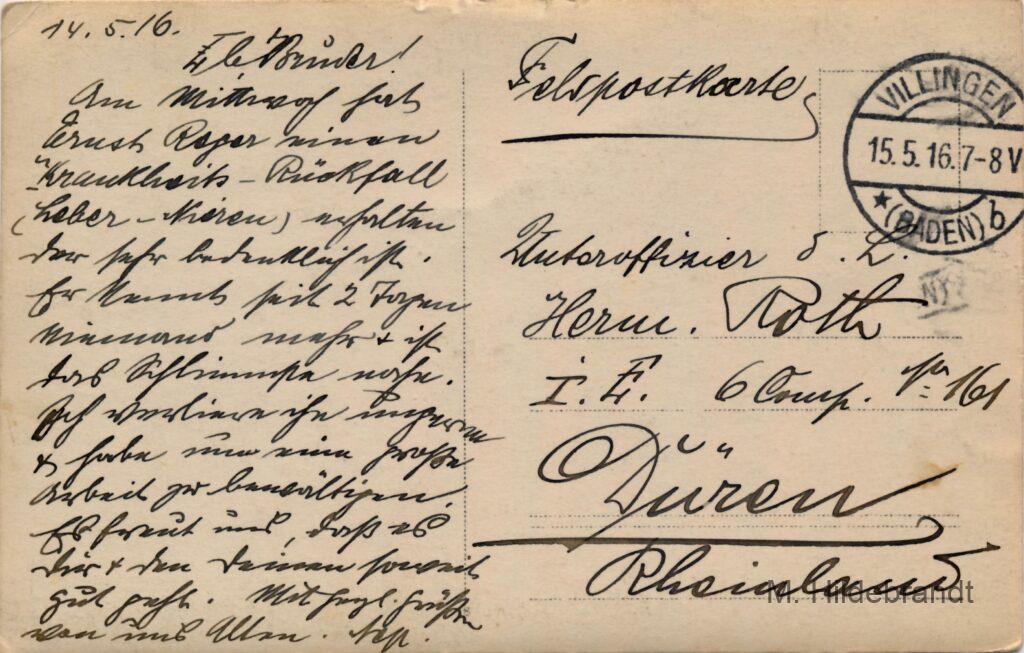 14.5.16.
Lb. Bruder!
Am Mittwoch hat
Ernst Reger einen
Krankheits-Rückfall
(Leber-Nieren) erhalten
der sehr bedenklich ist.
Er kennt seit 2 Tagen
niemand mehr & ist
das Schlimmste nahe.
Ich verliere ihn ungern
& habe nun eine große
Arbeit zu bewältigen.
Es freut uns, daß es
dir & den Deinen soweit
gut geht. Mit herzl. Grüßen
von uns Allen.
Feldpostkarte
VILLINGEN
15.5.16.7-8V
★(BADEN)b
Unteroffizier d. L.
Herm. Roth
I. E. 6 Comp. No 161
Düren
Rheinland
M. Hildebrandt